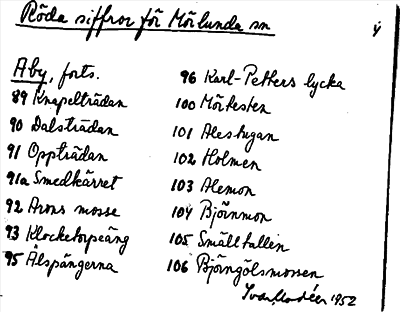 Röda siffror för Mörlunda sn
4
Åby, forts.
89 Knapelträdan
90 Dalsträdan
91 Oppträdan
91a Smedkärret
92 Arons mosse
93 Klocketorpeäng
95 Älspängerna
96 Karl-Petters lycka
100 Mörtesten
101 Alestugan
102 Holmen
103 Alemon
104 Björnmon
105 Smälltallen
106 Björngölsmossen
1952